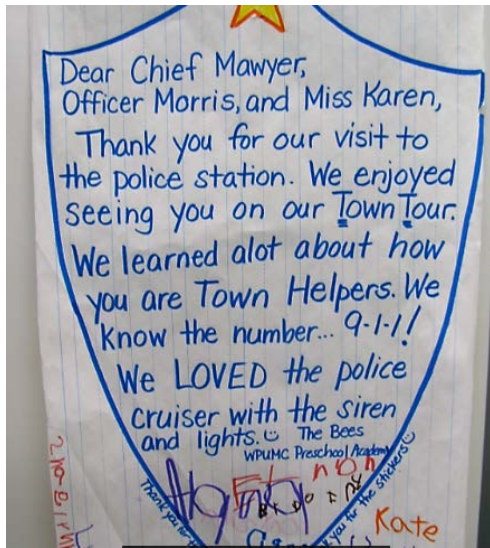 Dear Chief Mawyer,
Officer Morris, and Miss Karen,
Thank you for our visit to
the police station. We enjoyed
seeing you on our Town Tour.
We learned alot about how
you are Town Helpers. We
know the number... 9-1-1!
We LOVED the police
cruiser with the siren
and lights.☺ The Bees
WPUMC Preschool Academy
Thank you for
you for the stickers☺
Kate